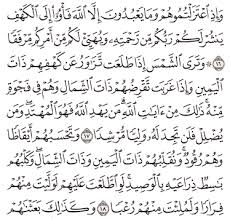 وَإِذِ ٱعْتَزَلْتُمُوهُمْ وَمَا يَعْبُدُونَ إِلَّا ٱللَّهَ فَأْوُۥٓا۟ إِلَى ٱلْكَهْفِ
يَنشُرْ لَكُمْ رَبُّكُم مِّن رَّحْمَتِهِۦ وَيُهَيِّئْ لَكُم مِّنْ أَمْرِكُم مِّرْفَقًا
١٦ وَتَرَى ٱلشَّمْسَ إِذَا طَلَعَت تَّزَٰوَرُ عَن كَهْفِهِمْ ذَاتَ
ٱلْيَمِينِ وَإِذَا غَرَبَت تَّقْرِضُهُمْ ذَاتَ ٱلشِّمَالِ وَهُمْ فِى فَجْوَةٍ
مِّنْهُ ۚ ذَٰلِكَ مِنْ ءَايَٰتِ ٱللَّهِ ۗ مَن يَهْدِ ٱللَّهُ فَهُوَ ٱلْمُهْتَدِ ۖ وَمَن
يُضْلِلْ فَلَن تَجِدَ لَهُۥ وَلِيًّا مُّرْشِدًا ١٧ وَتَحْسَبُهُمْ أَيْقَاظًا
وَهُمْ رُقُودٌ ۚ وَنُقَلِّبُهُمْ ذَاتَ ٱلْيَمِينِ وَذَاتَ ٱلشِّمَالِ ۖ وَكَلْبُهُم
بَٰسِطٌ ذِرَاعَيْهِ بِٱلْوَصِيدِ ۚ لَوِ ٱطَّلَعْتَ عَلَيْهِمْ لَوَلَّيْتَ مِنْهُمْ
فِرَارًا وَلَمُلِئْتَ مِنْهُمْ رُعْبًا ١٨ وَكَذَٰلِكَ بَعَثْنَٰهُمْ